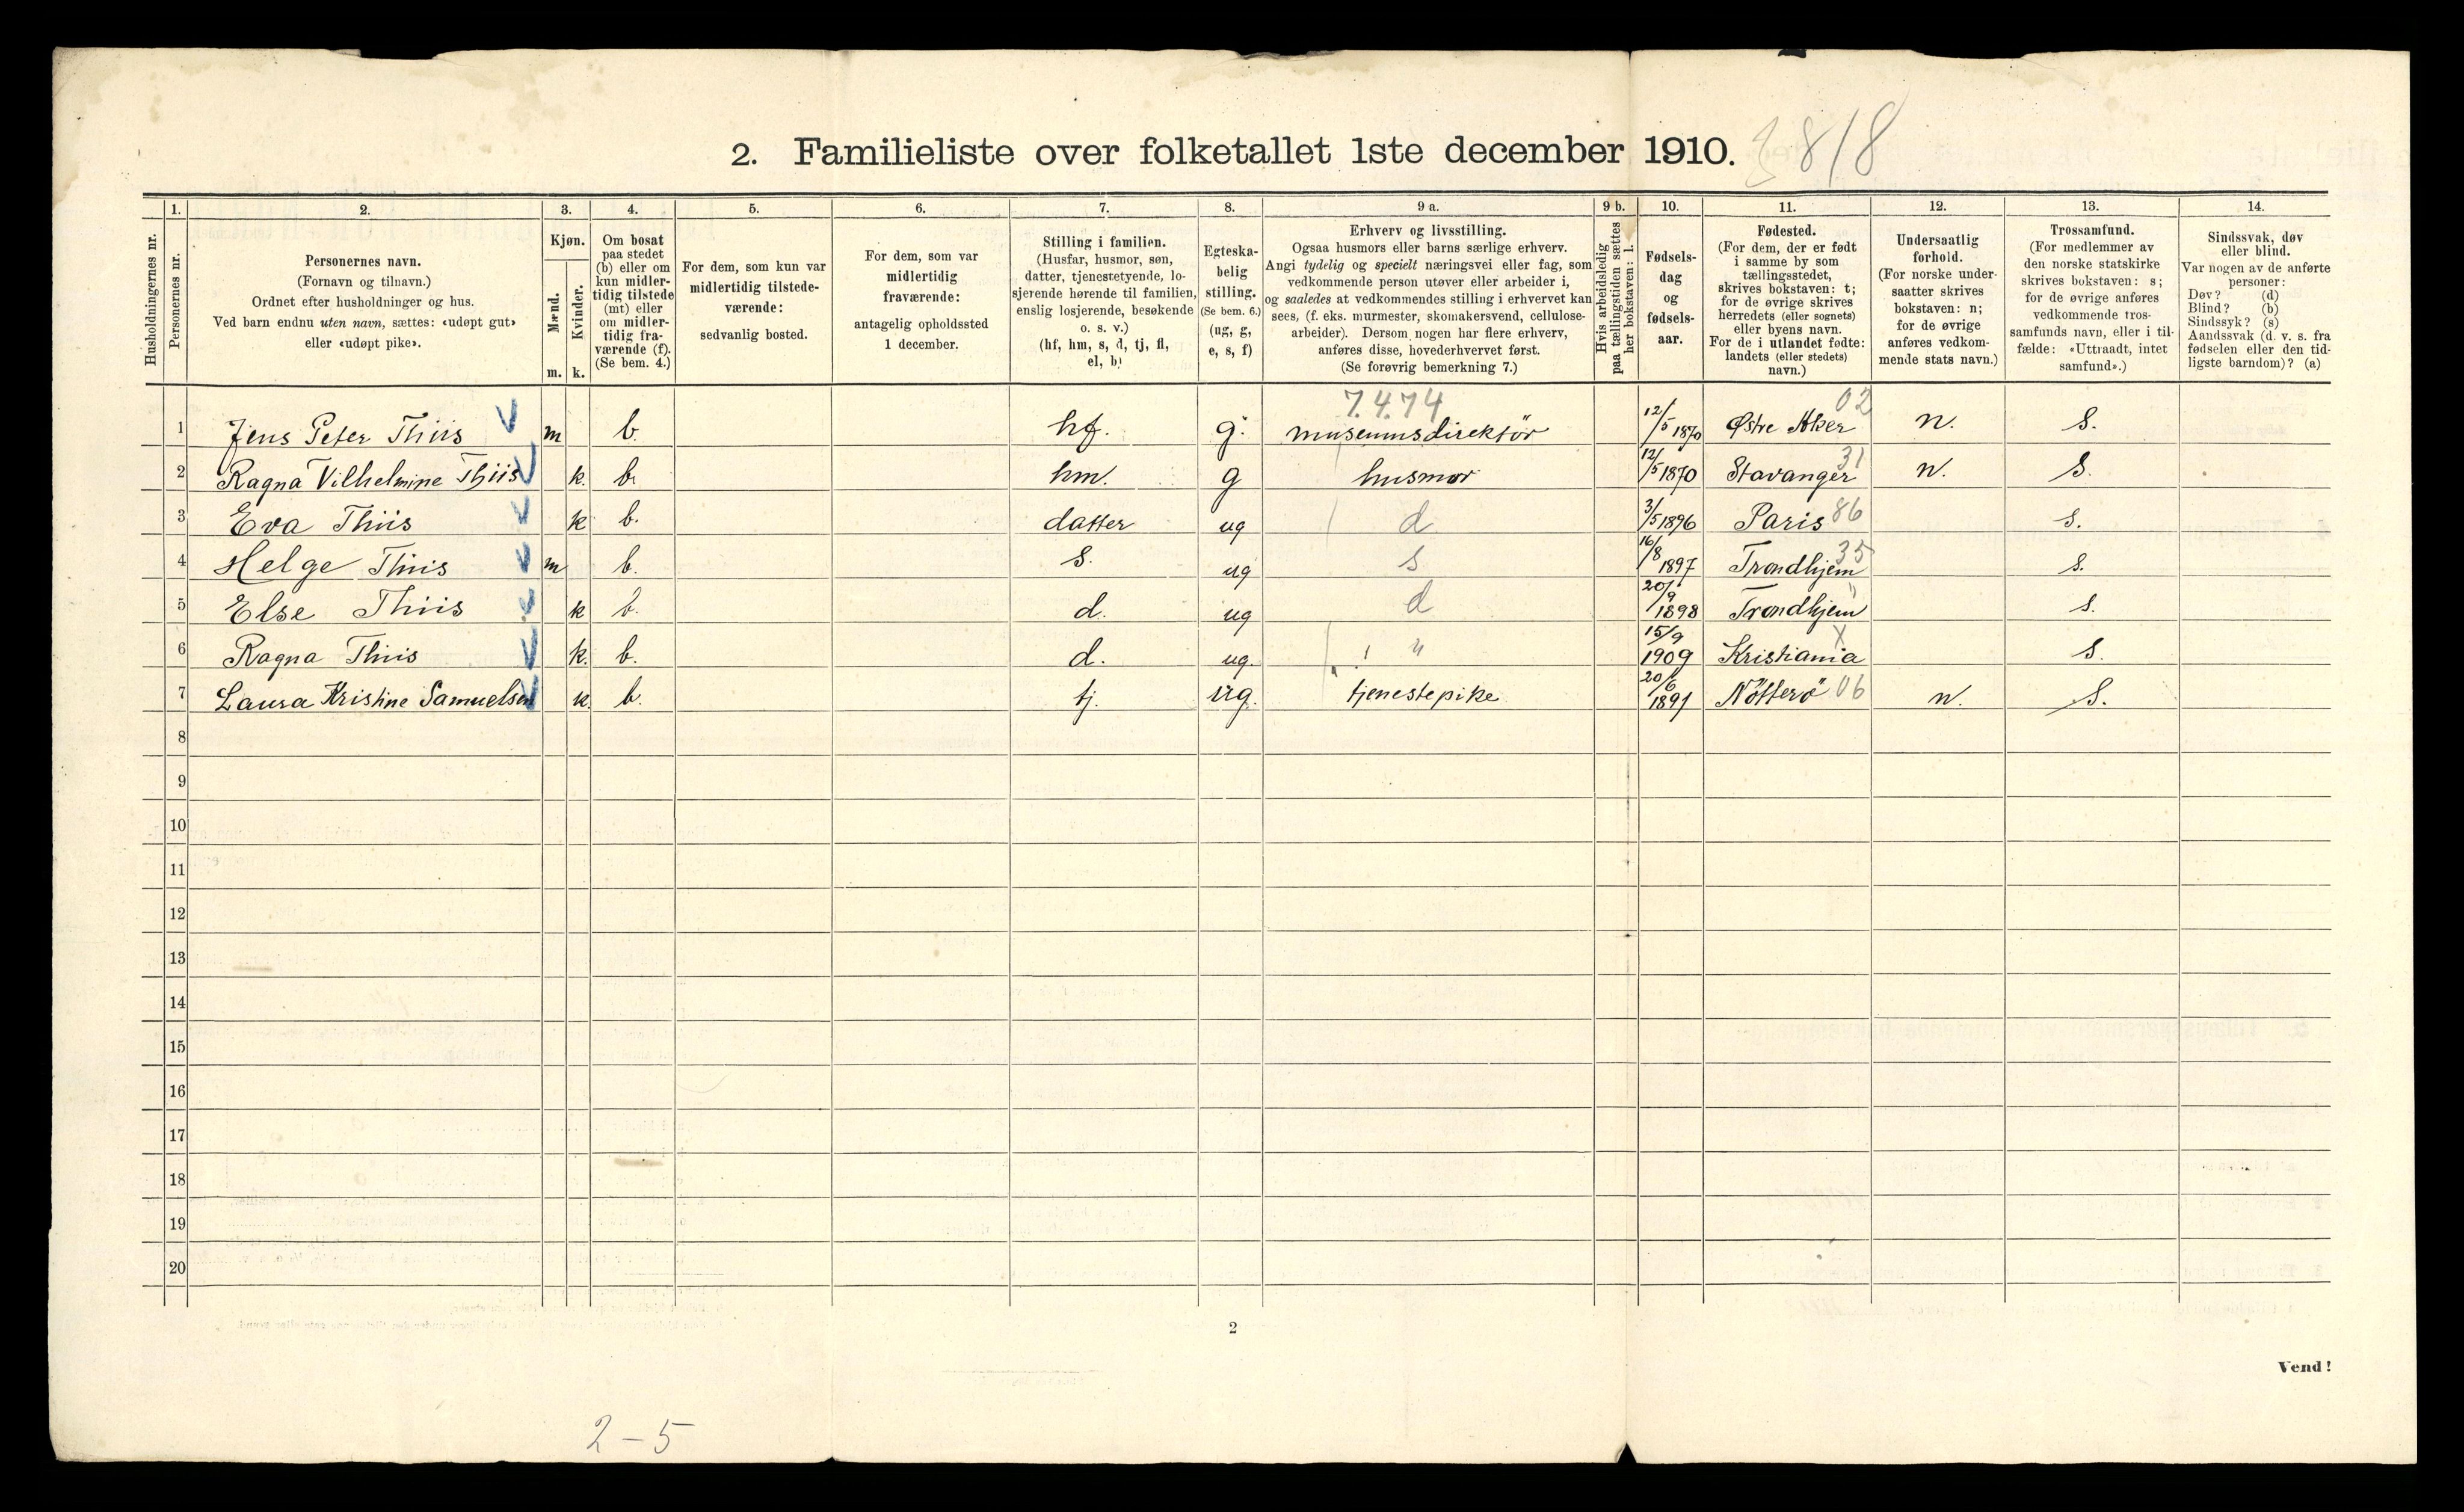 2. Familieliste over folketallet 1ste december 1910.
818
1.
2.
3.
4.
5.
6.
7.
8.
9 a.
9 b.
10.
11.
12.
13.
14.
Husholdningernes nr.
Personernes nr.
Personernes navn.
(Fornavn og tilnavn.)
Ordnet efter husholdninger og hus.
Ved barn endnu uten navn, sættes: «udøpt gut»
eller «udøpt pike».
Kjøn.
Mænd.
Kvinder.
m. k.
Om bosat
paa stedet
(b) eller om
kun midler-
tidig tilstede
(mt) eller
om midler-
tidig fra-
værende (f).
(Se bem. 4.)
For dem, som kun var
midlertidig tilstede-
værende:
sedvanlig bosted.
For dem, som var
midlertidig
fraværende:
antagelig opholdssted
1 december.
Stilling i familien.
(Husfar, husmor, søn,
datter, tjenestetyende, lo-
sjerende hørende til familien,
enslig losjerende, besøkende
o. s. v.)
(hf, hm, s, d, tj, fl,
el, b)
Egteska-
belig
stilling.
(Se bem. 6.)
(ug, g,
e, s, f)
Erhverv og livsstilling.
Ogsaa husmors eller barns særlige erhverv.
Angi tydelig og specielt næringsvei eller fag, som
vedkommende person utøver eller arbeider i,
og saaledes at vedkommendes stilling i erhvervet kan
sees, (f. eks. murmester, skomakersvend, cellulose-
arbeider). Dersom nogen har flere erhverv,
anføres disse, hovederhvervet først.
(Se forøvrig bemerkning 7.)
Hvis arbeidsledig
paa tællingstiden sættes
her bokstaven: l.
Fødsels-
dag
og
fødsels-
aar.
Fødested.
(For dem, der er født
i samme by som
tællingsstedet,
skrives bokstaven: t;
for de øvrige skrives
herredets (eller sognets)
eller byens navn.
For de i utlandet fødte:
landets (eller stedets)
navn.)
Undersaatlig
forhold.
(For norske under-
saatter skrives
bokstaven: n;
for de øvrige
anføres vedkom-
mende stats navn.)
Trossamfund.
(For medlemmer av
den norske statskirke
skrives bokstaven: s;
for de øvrige anføres
vedkommende tros-
samfunds navn, eller i til-
fælde: «Uttraadt, intet
samfund».)
Sindssvak, døv
eller blind.
Var nogen av de anførte
personer:
Døv? (d)
Blind? (b)
Sindssyk? (s)
Aandssvak (d. v. s. fra
fødselen eller den tid-
ligste barndom)? (a)
7.4.74 02
1 Jens Peter Thiis m b. hf. g. museumsdirektör 12/5 1870 Østre Aker n. S.
2 Ragna Vilhelmine Thiis k. b. hm. g husmor 12/5 1870 Stavanger 31 n. S.
3 Eva Thiis k b. datter ug d 3/5 1896 Paris 86 S.
4 Helge Thiis m b. s. ug s 16/8 1897 Trondhjem 35 S.
5 Else Thiis k b. d. ug d 20/9 1898 Trondhjem " S.
6 Ragna Thiis k. b. d. ug. " 15/9 1909 Kristiania X S.
7 Laura Kristine Samuelsen k. b. tj. ug. tjenestepike 20/6 1891 Nötterö 06 n. S.
8
9
10
11
12
13
14
15
16
17
18
19
20
2
Vend!
2-5